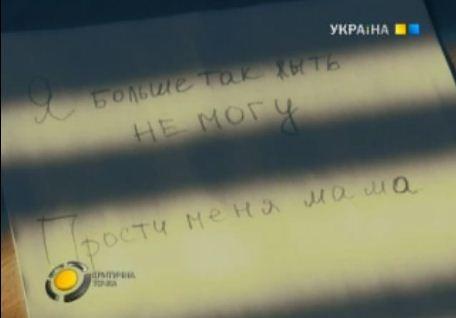 УКРАЇНА
Я больше так жыть
не могу
Прости меня мама
КРИТИЧНА
ТОЧКА